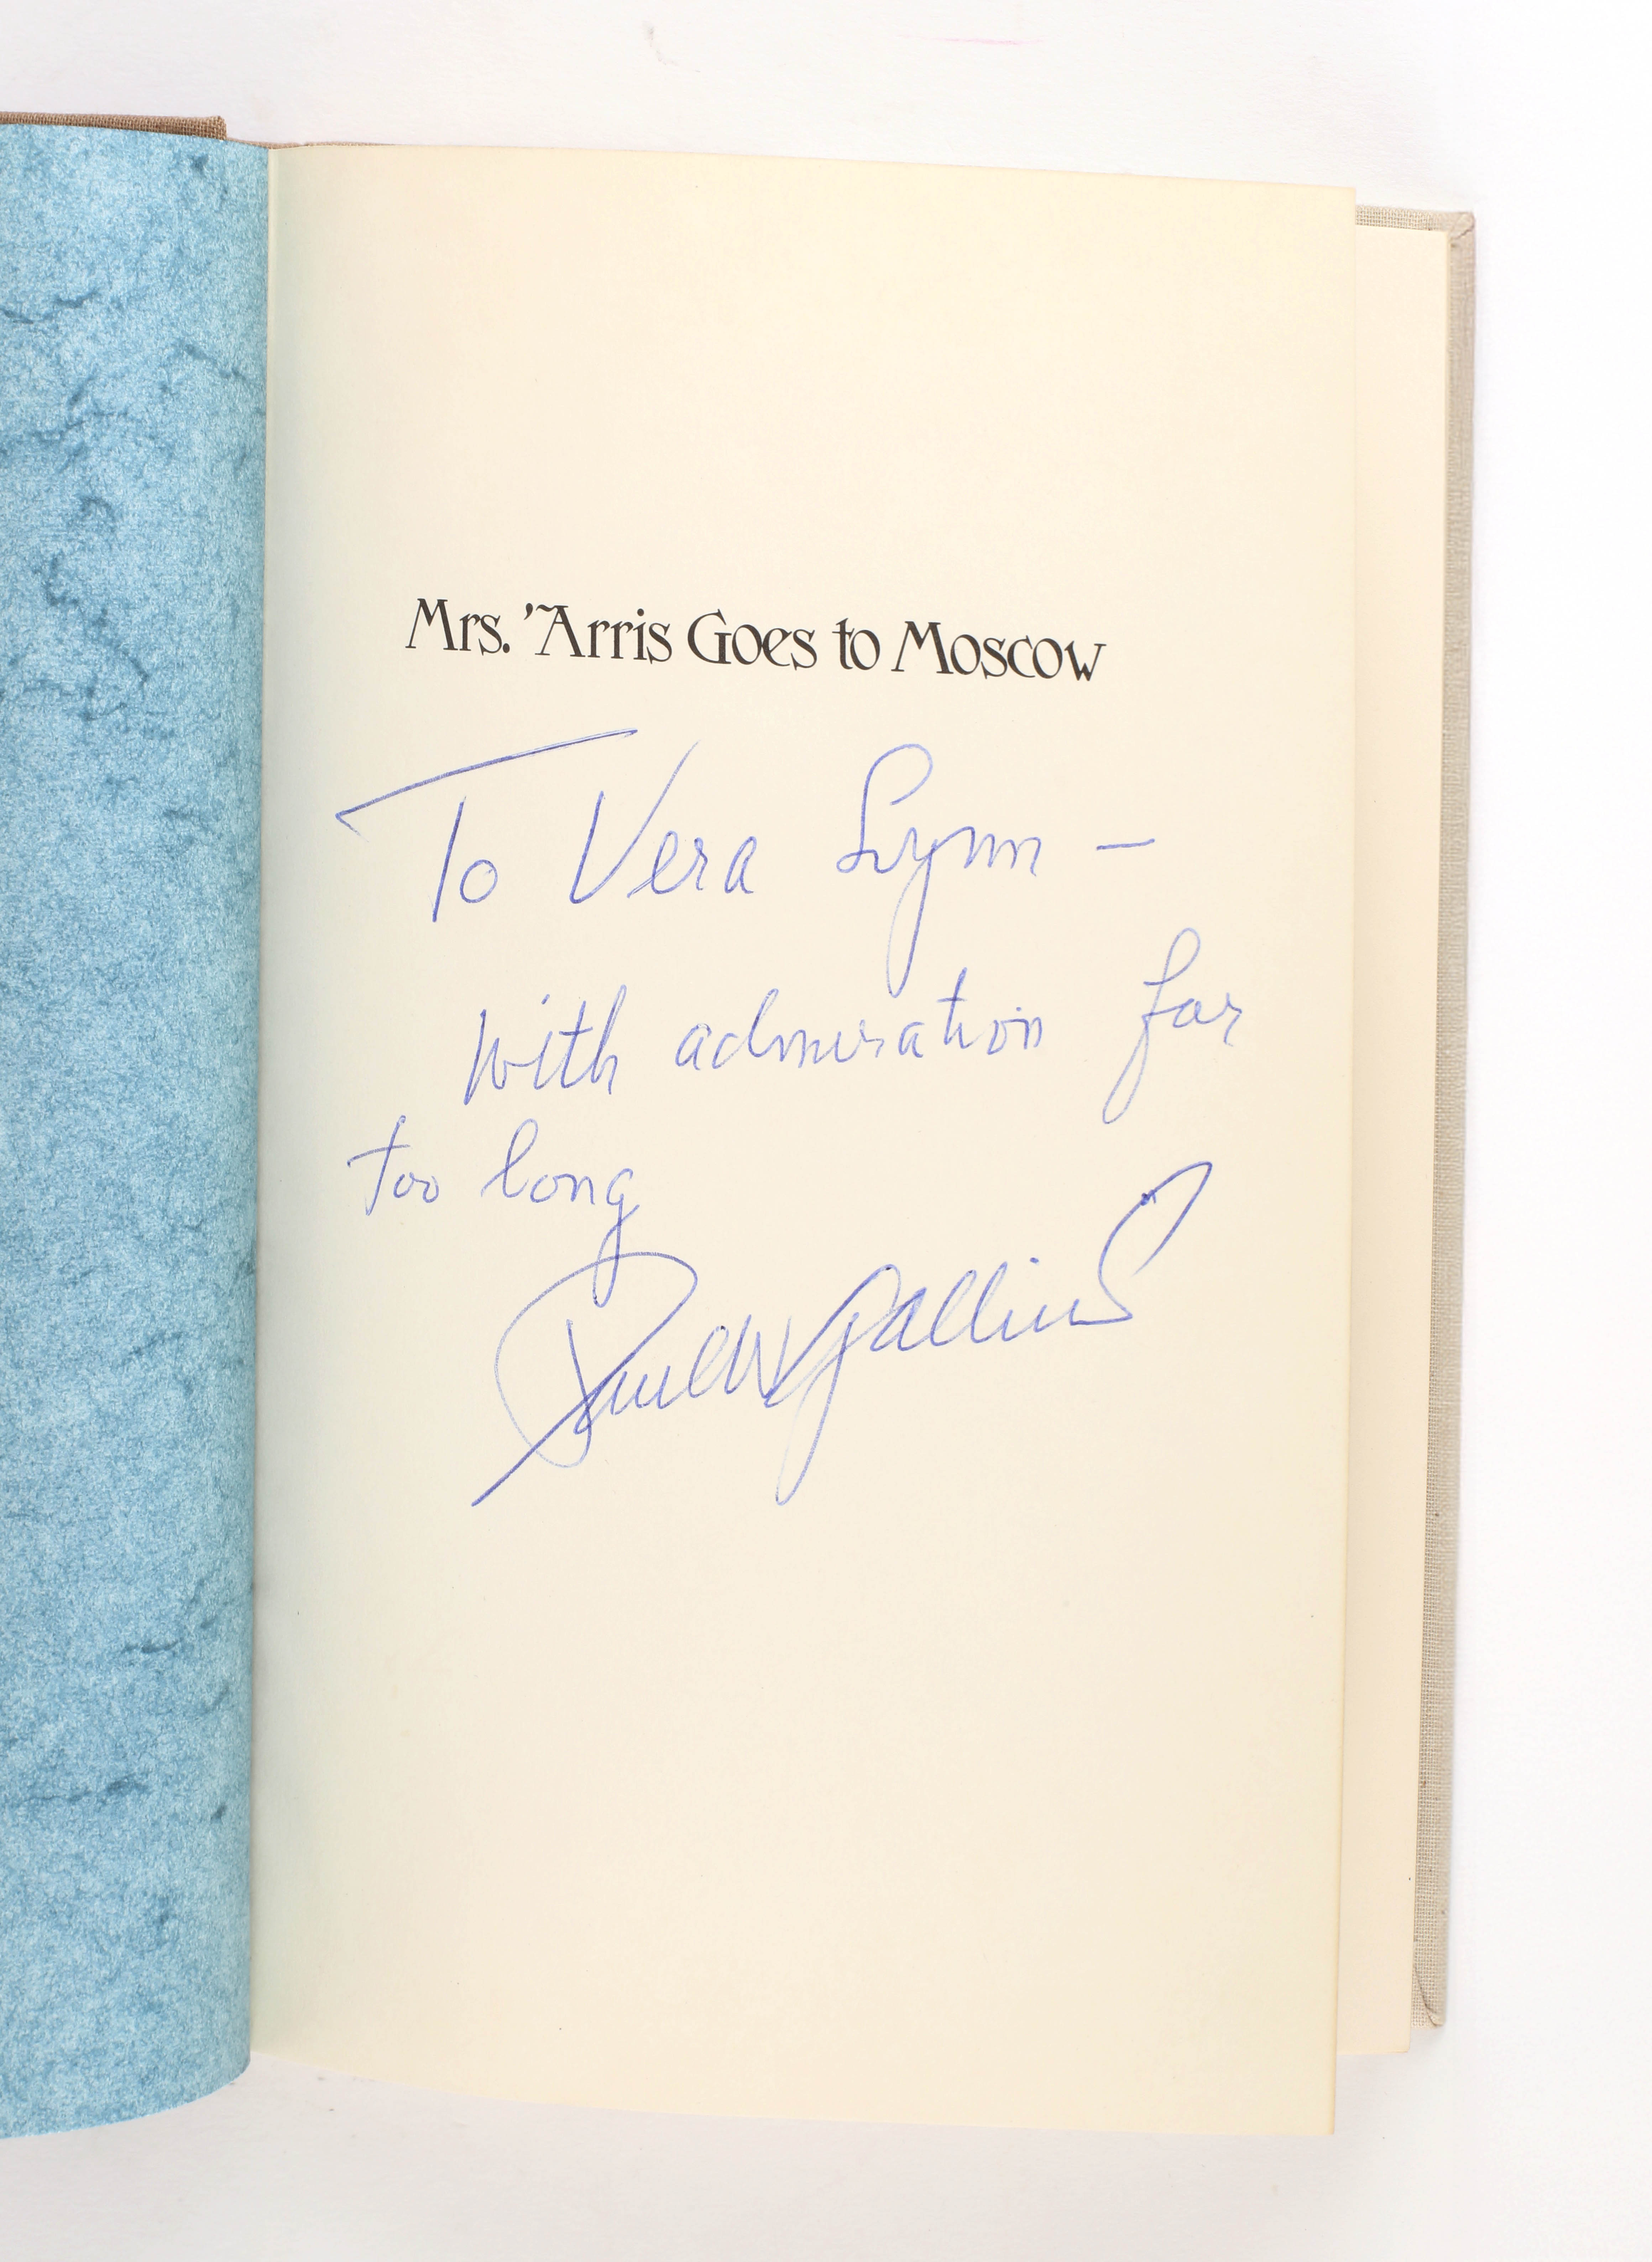 Mrs. 'Arris Goes to Moscow
To Vera Lynn —
With admiration far
too long
Paul W Gallico